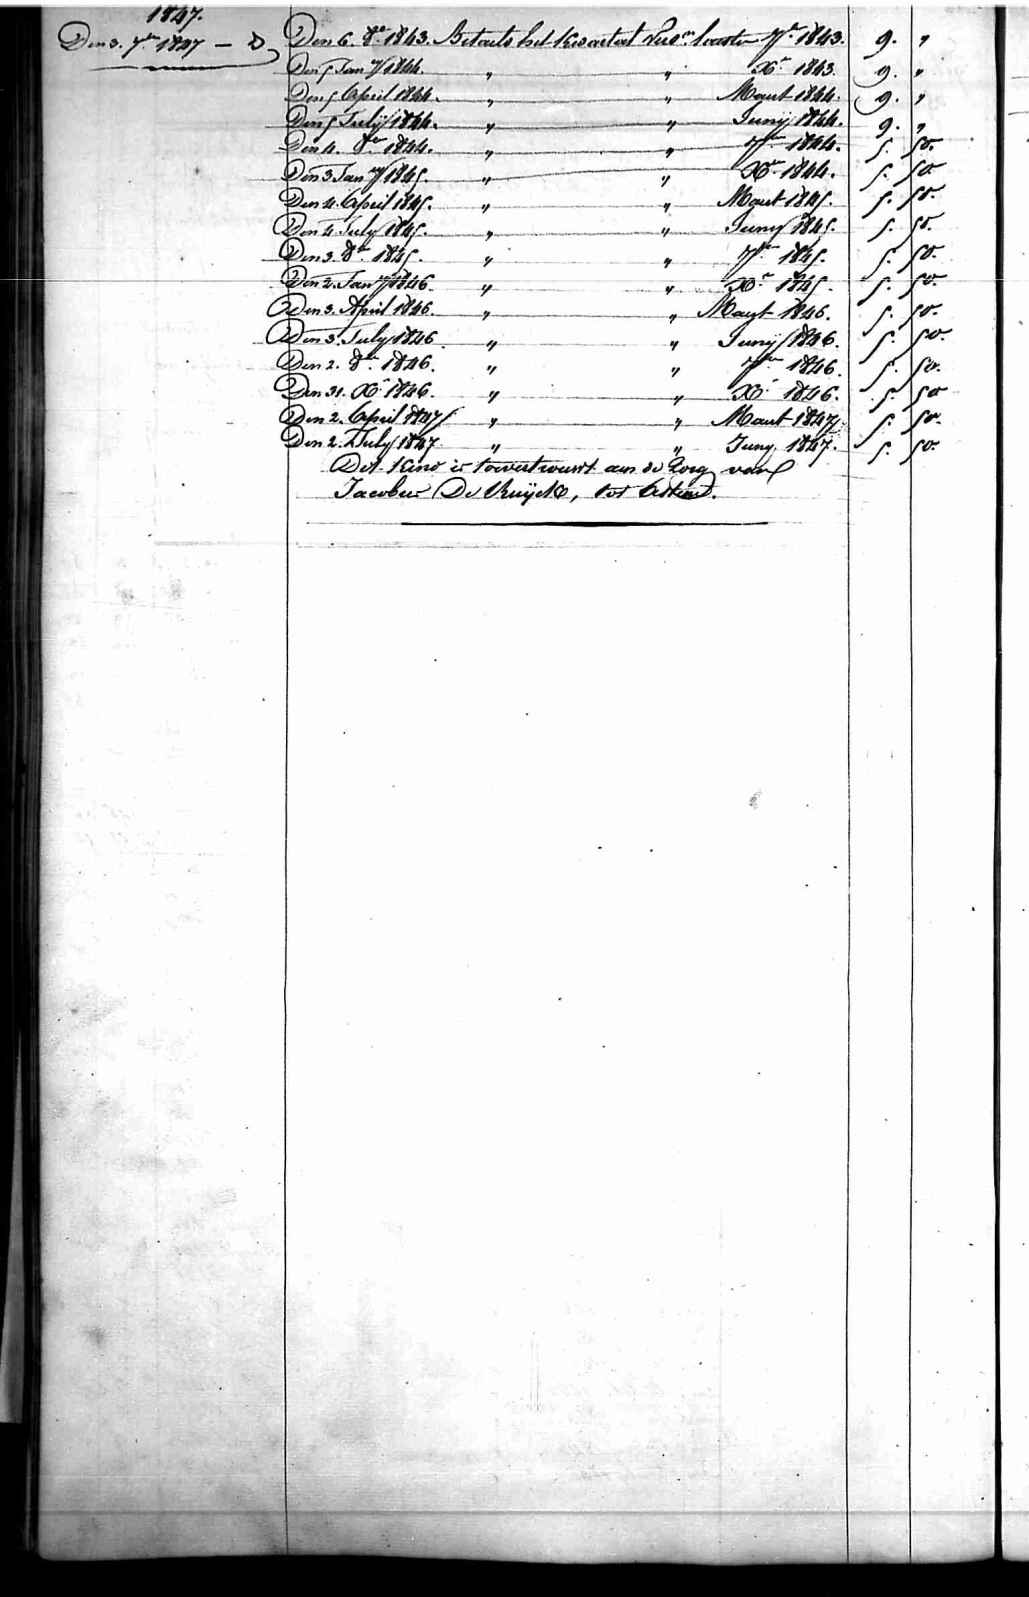 1847.
Den 3. 7bre 1847 — D
Den 6. 8bre 1843. Betaelt het Kwartael laesten 7bre 1843. 9. "
Den 5 Jany 1844. " " Xbre 1843. 9. "
Den 5 April 1844. " " Maert 1844. 9. "
Den 5 July 1844. " " Juny 1844. 9. "
Den 4. 8bre 1844. " " 7bre 1844. 5. 50.
Den 3 Jany 1845. " " Xbre 1844. 5. 50
Den 4. April 1845. " " Maert 1845. 5. 50.
Den 4. July 1845. " " Juny 1845. 5. 50.
Den 3. 8bre 1845. " " 7bre 1845. 5. 50.
Den 2. Jany 1846. " " Xbre 1845. 5. 50.
Den 3. April 1846. " " Maert 1846. 5. 50.
Den 3. July 1846. " " Juny 1846. 5. 50.
Den 2. 8bre 1846. " " 7bre 1846. 5. 50.
Den 31. Xbre 1846. " " Xbre 1846. 5. 50
Den 2. April 1847 " " Maert 1847. 5. 50.
Den 2. July 1847. " " Juny 1847. 5. 50.
Dit Kind is toevertrouwt aen de Zorg van
Jacobus De Kuijck, tot